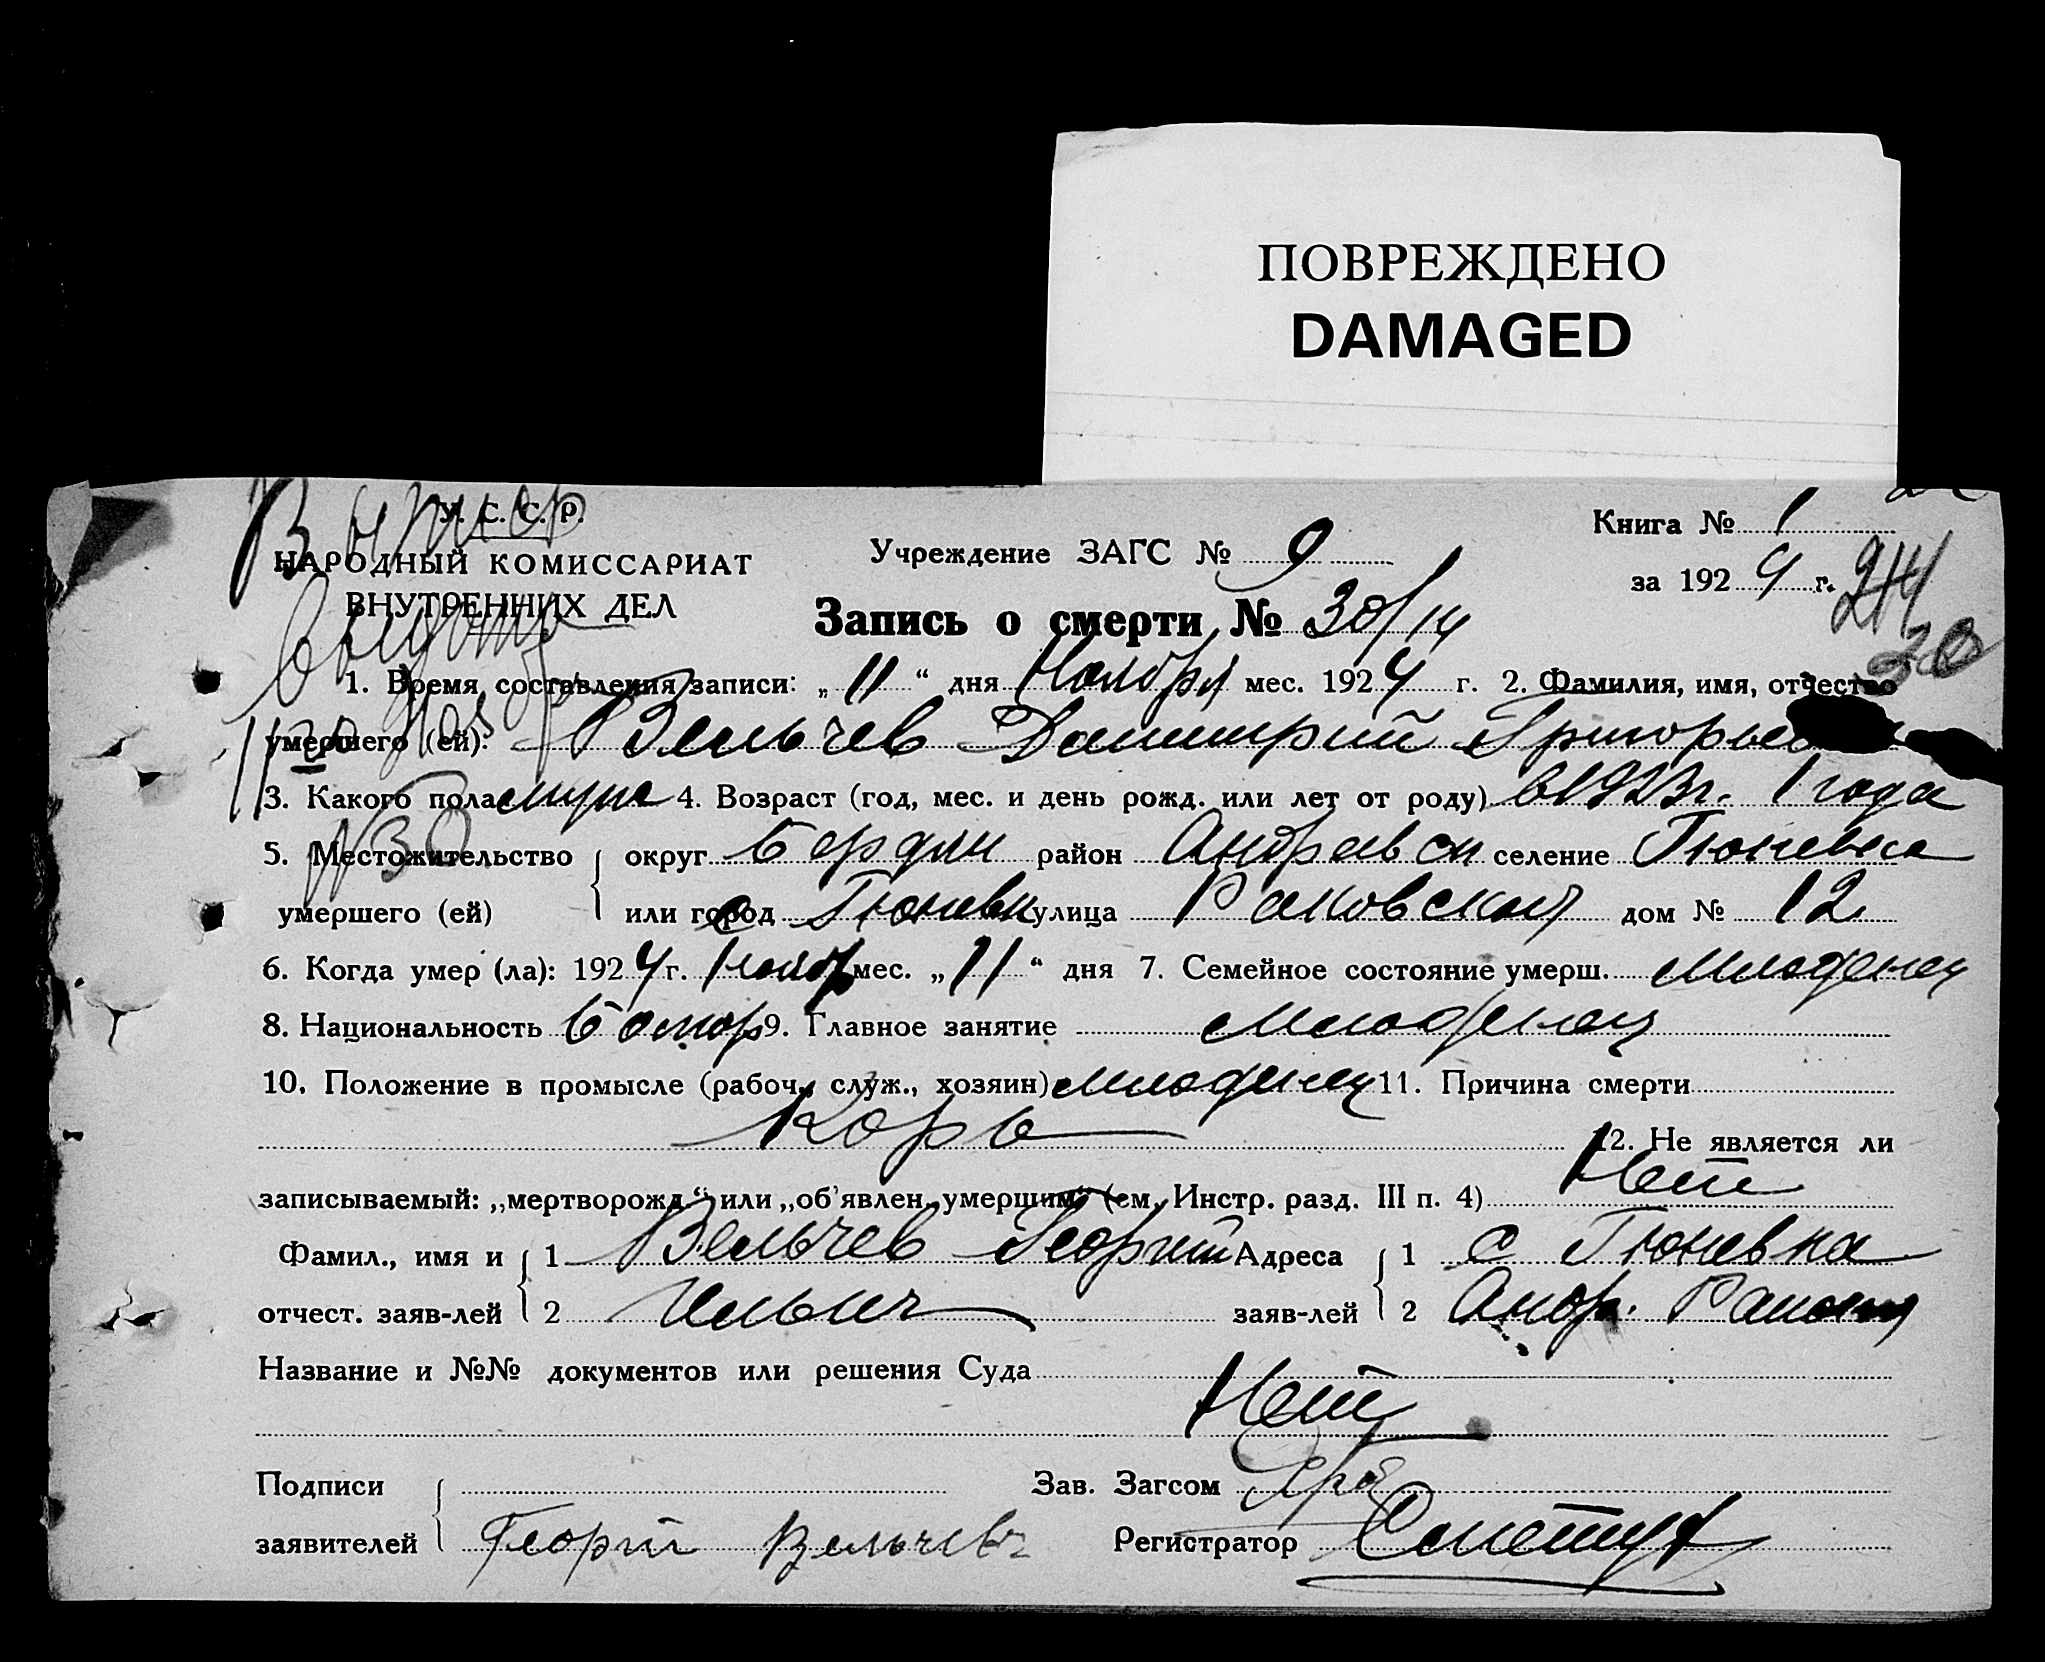 ПОВРЕЖДЕНО
DAMAGED
У. С. С. Р.
НАРОДНЫЙ КОМИССАРИАТ
ВНУТРЕННИХ ДЕЛ
Учреждение ЗАГС № 9
Книга № 1
за 1924 г.
214
30
Запись о смерти № 30/14
Вытор
1. Время составления записи: „11“ дня Ноября мес. 1924 г. 2. Фамилия, имя, отчество
умершего (ей): Вельчев Димитрий Григорьев
3. Какого пола муж 4. Возраст (год, мес. и день рожд. или лет от роду) в 1923 г. 1 года
5. Местожительство умершего (ей) округ Бердян район Андравск селение Гюневка
или город с Гюневка улица Раковская дом № 12
6. Когда умер (ла): 1924 г. Нояб мес. „11“ дня 7. Семейное состояние умерш. младенец
8. Национальность Болгор 9. Главное занятие младенец
10. Положение в промысле (рабоч., служ., хозяин) младенец 11. Причина смерти
Корь 12. Не является ли
записываемый: „мертворожд.“ или „об'явлен. умершим“ (см. Инстр. разд. III п. 4) Нет
Фамил., имя и 1 Вельчев Георгий Адреса 1 с Гюневка
отчест. заяв-лей 2 Ильич заяв-лей 2 Андр.
Название и №№ документов или решения Суда
Нет
Подписи Зав. Загсом
заявителей Георгій Вельчевъ Регистратор